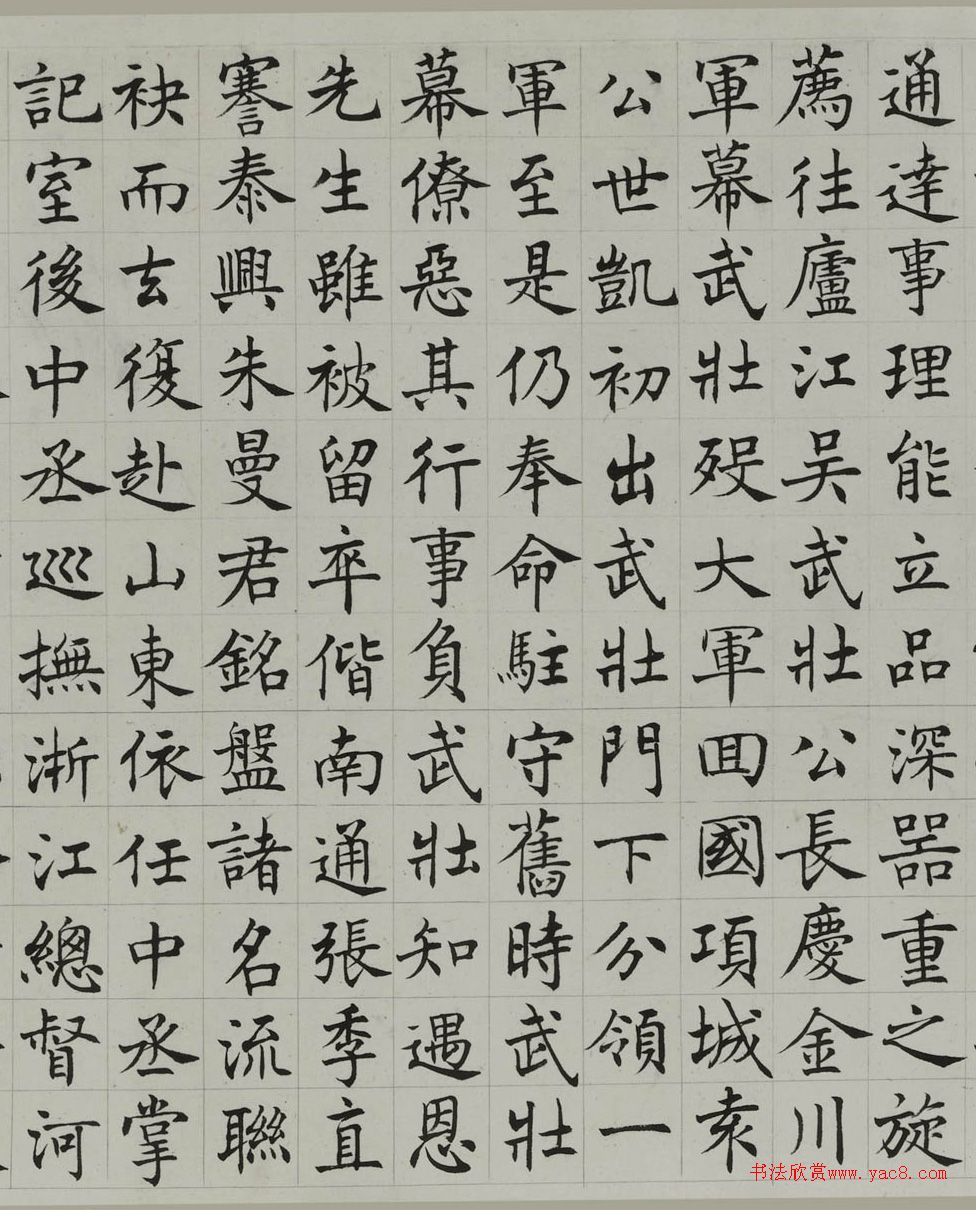 通達事理能立品深器重之旋
薦往廬江吴武壯公長慶金川
軍幕武壯殁大軍回國項城袁
公世凱初出武壯門下分領一
軍至是仍奉命駐守舊時武壯
幕僚惡其行事負武壯知遇恩
先生雖被留卒偕南通張季直
謇泰興朱曼君銘盤諸名流聯
袂而去復赴山東依任中丞掌
記室後中丞巡撫浙江總督河
书法欣赏www.yac8.com